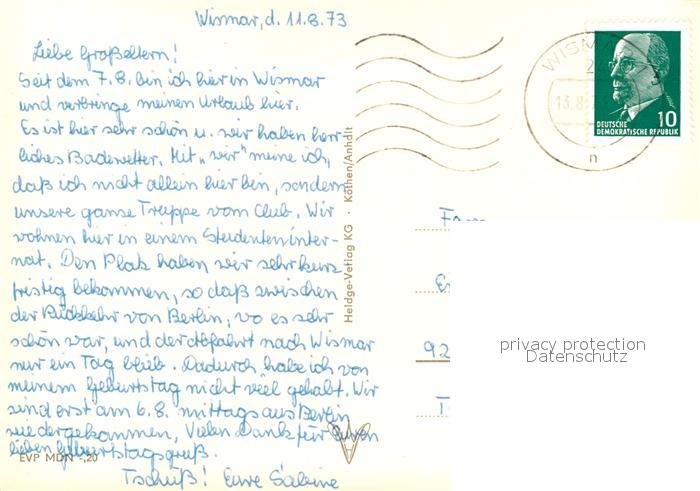 Wismar, d. 11.8.73
Liebe Großeltern!
Seit dem 7.8. bin ich hier in Wismar
und verbringe meinen Urlaub hier.
Es ist hier sehr schön u. wir haben herr-
liches Badewetter. Mit „wir" meine ich,
daß ich nicht allein hier bin, sondern
unsere ganze Truppe vom Club. Wir
wohnen hier in einem Studenteninter-
nat. Den Platz haben wir sehr kurz
fristig bekommen, so daß zwischen
der Rückkehr von Berlin, wo es sehr
schön war, und der Abfahrt nach Wismar
nur ein Tag blieb. Dadurch habe ich von
meinem Geburtstag nicht viel gehabt. Wir
sind erst am 6.8. mittags aus Berlin
wiedergekommen, Vielen Dank für Euren
lieben Geburtstagsgruß.
Tschüß! Eure Sabine
EVP MDN -,20
Heldge-Verlag KG · Köthen/Anhalt
WISMAR
13.8.
n
DEUTSCHE
DEMOKRATISCHE REPUBLIK
10
92
privacy protection
Datenschutz